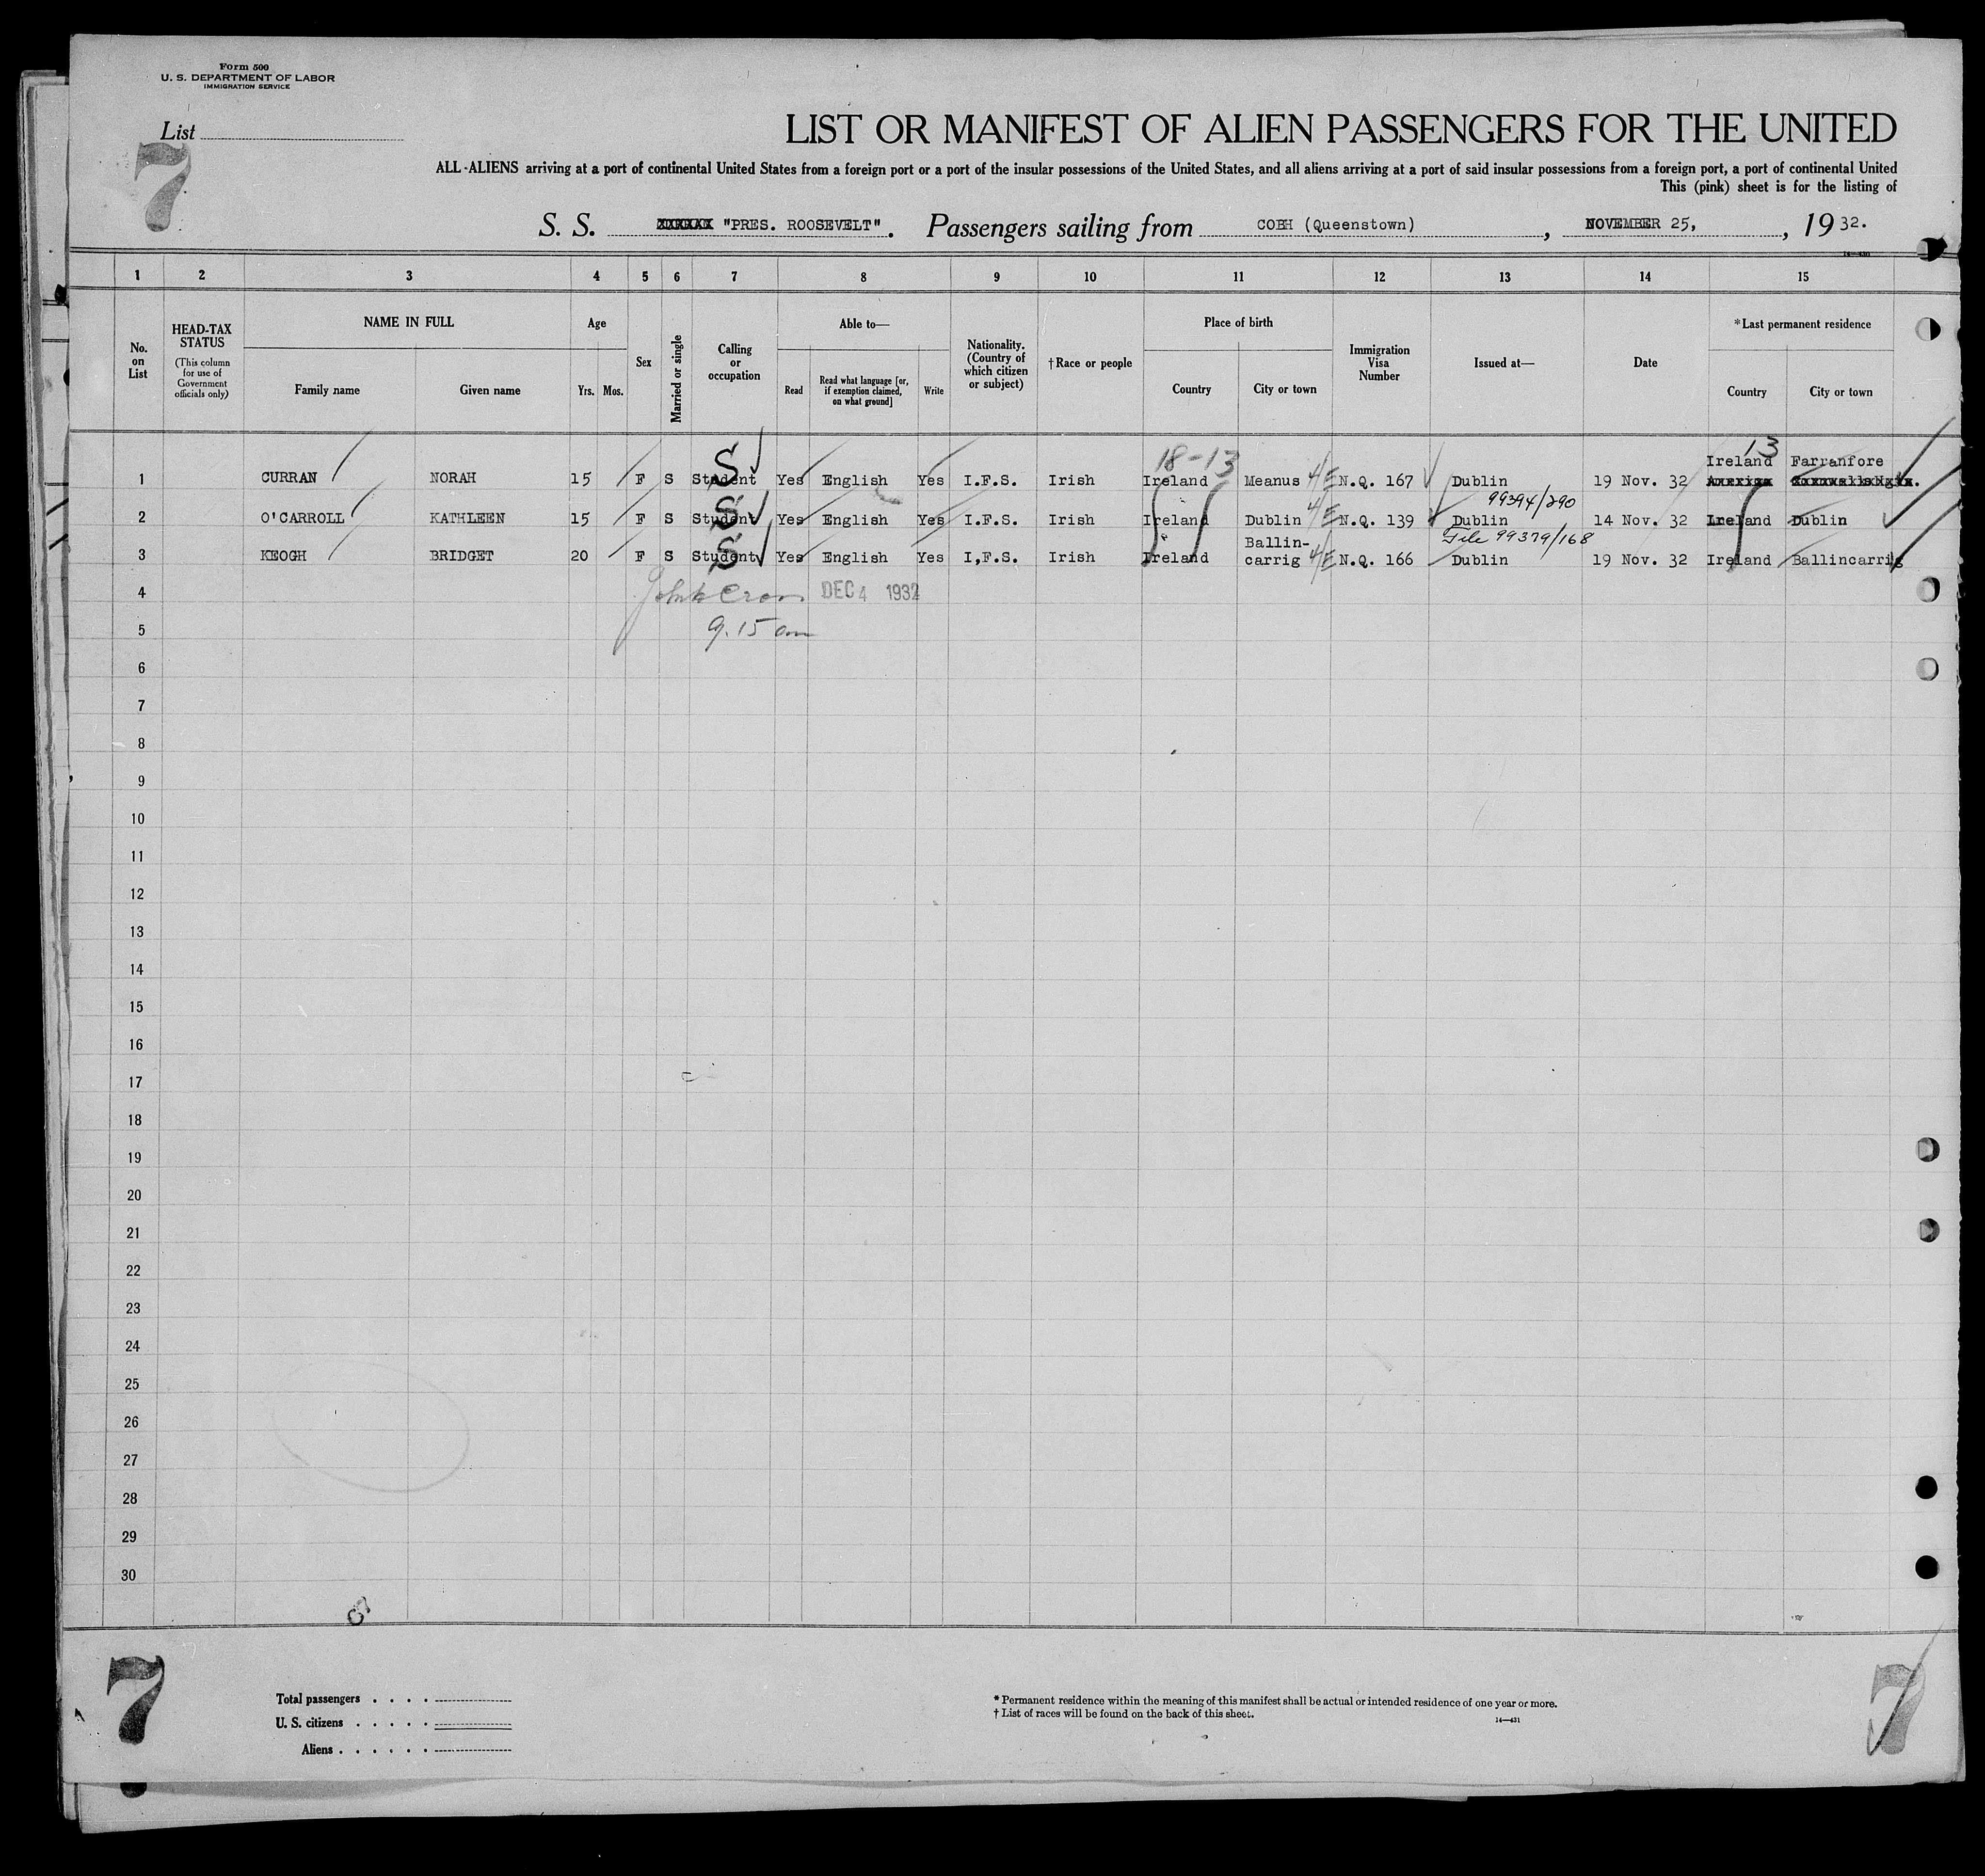 Form 500
U. S. DEPARTMENT OF LABOR
IMMIGRATION SERVICE
List
7
LIST OR MANIFEST OF ALIEN PASSENGERS FOR THE UNITED
ALL ALIENS arriving at a port of continental United States from a foreign port or a port of the insular possessions of the United States, and all aliens arriving at a port of said insular possessions from a foreign port, a port of continental United
This (pink) sheet is for the listing of
S. S. "PRES. ROOSEVELT". Passengers sailing from COBH (Queenstown), NOVEMBER 25, 1932.
1 2 3 4 5 6 7 8 9 10 11 12 13 14 15
No. on List
HEAD-TAX STATUS
(This column for use of Government officials only)
NAME IN FULL
Family name Given name
Age
Yrs. Mos.
Sex
Married or single
Calling or occupation
Able to—
Read
Read what language [or, if exemption claimed, on what ground]
Write
Nationality. (Country of which citizen or subject)
†Race or people
Place of birth
Country City or town
Immigration Visa Number
Issued at—
Date
*Last permanent residence
Country City or town
18-13 13
Ireland Farranfore
1 CURRAN NORAH 15 F S S Student Yes English Yes I.F.S. Irish Ireland Meanus N.Q. 167 Dublin 19 Nov. 32
99394/290
2 O'CARROLL KATHLEEN 15 F S S Student Yes English Yes I.F.S. Irish Ireland Dublin N.Q. 139 Dublin 14 Nov. 32 Ireland Dublin
File 99379/168
3 KEOGH BRIDGET 20 F S S Student Yes English Yes I,F.S. Irish Ireland Ballin-carrig N.Q. 166 Dublin 19 Nov. 32 Ireland Ballincarrig
4 DEC 4 1932
5 9.15 am
6
7
8
9
10
11
12
13
14
15
16
17
18
19
20
21
22
23
24
25
26
27
28
29
30
7
Total passengers
U. S. citizens
Aliens
* Permanent residence within the meaning of this manifest shall be actual or intended residence of one year or more.
† List of races will be found on the back of this sheet.
14—431
7